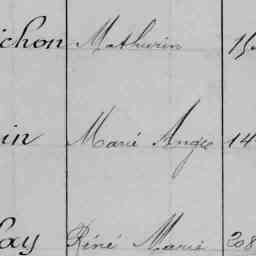 ichon Mathurin 15
in Marie Ange 14
lay Réné Marie 208